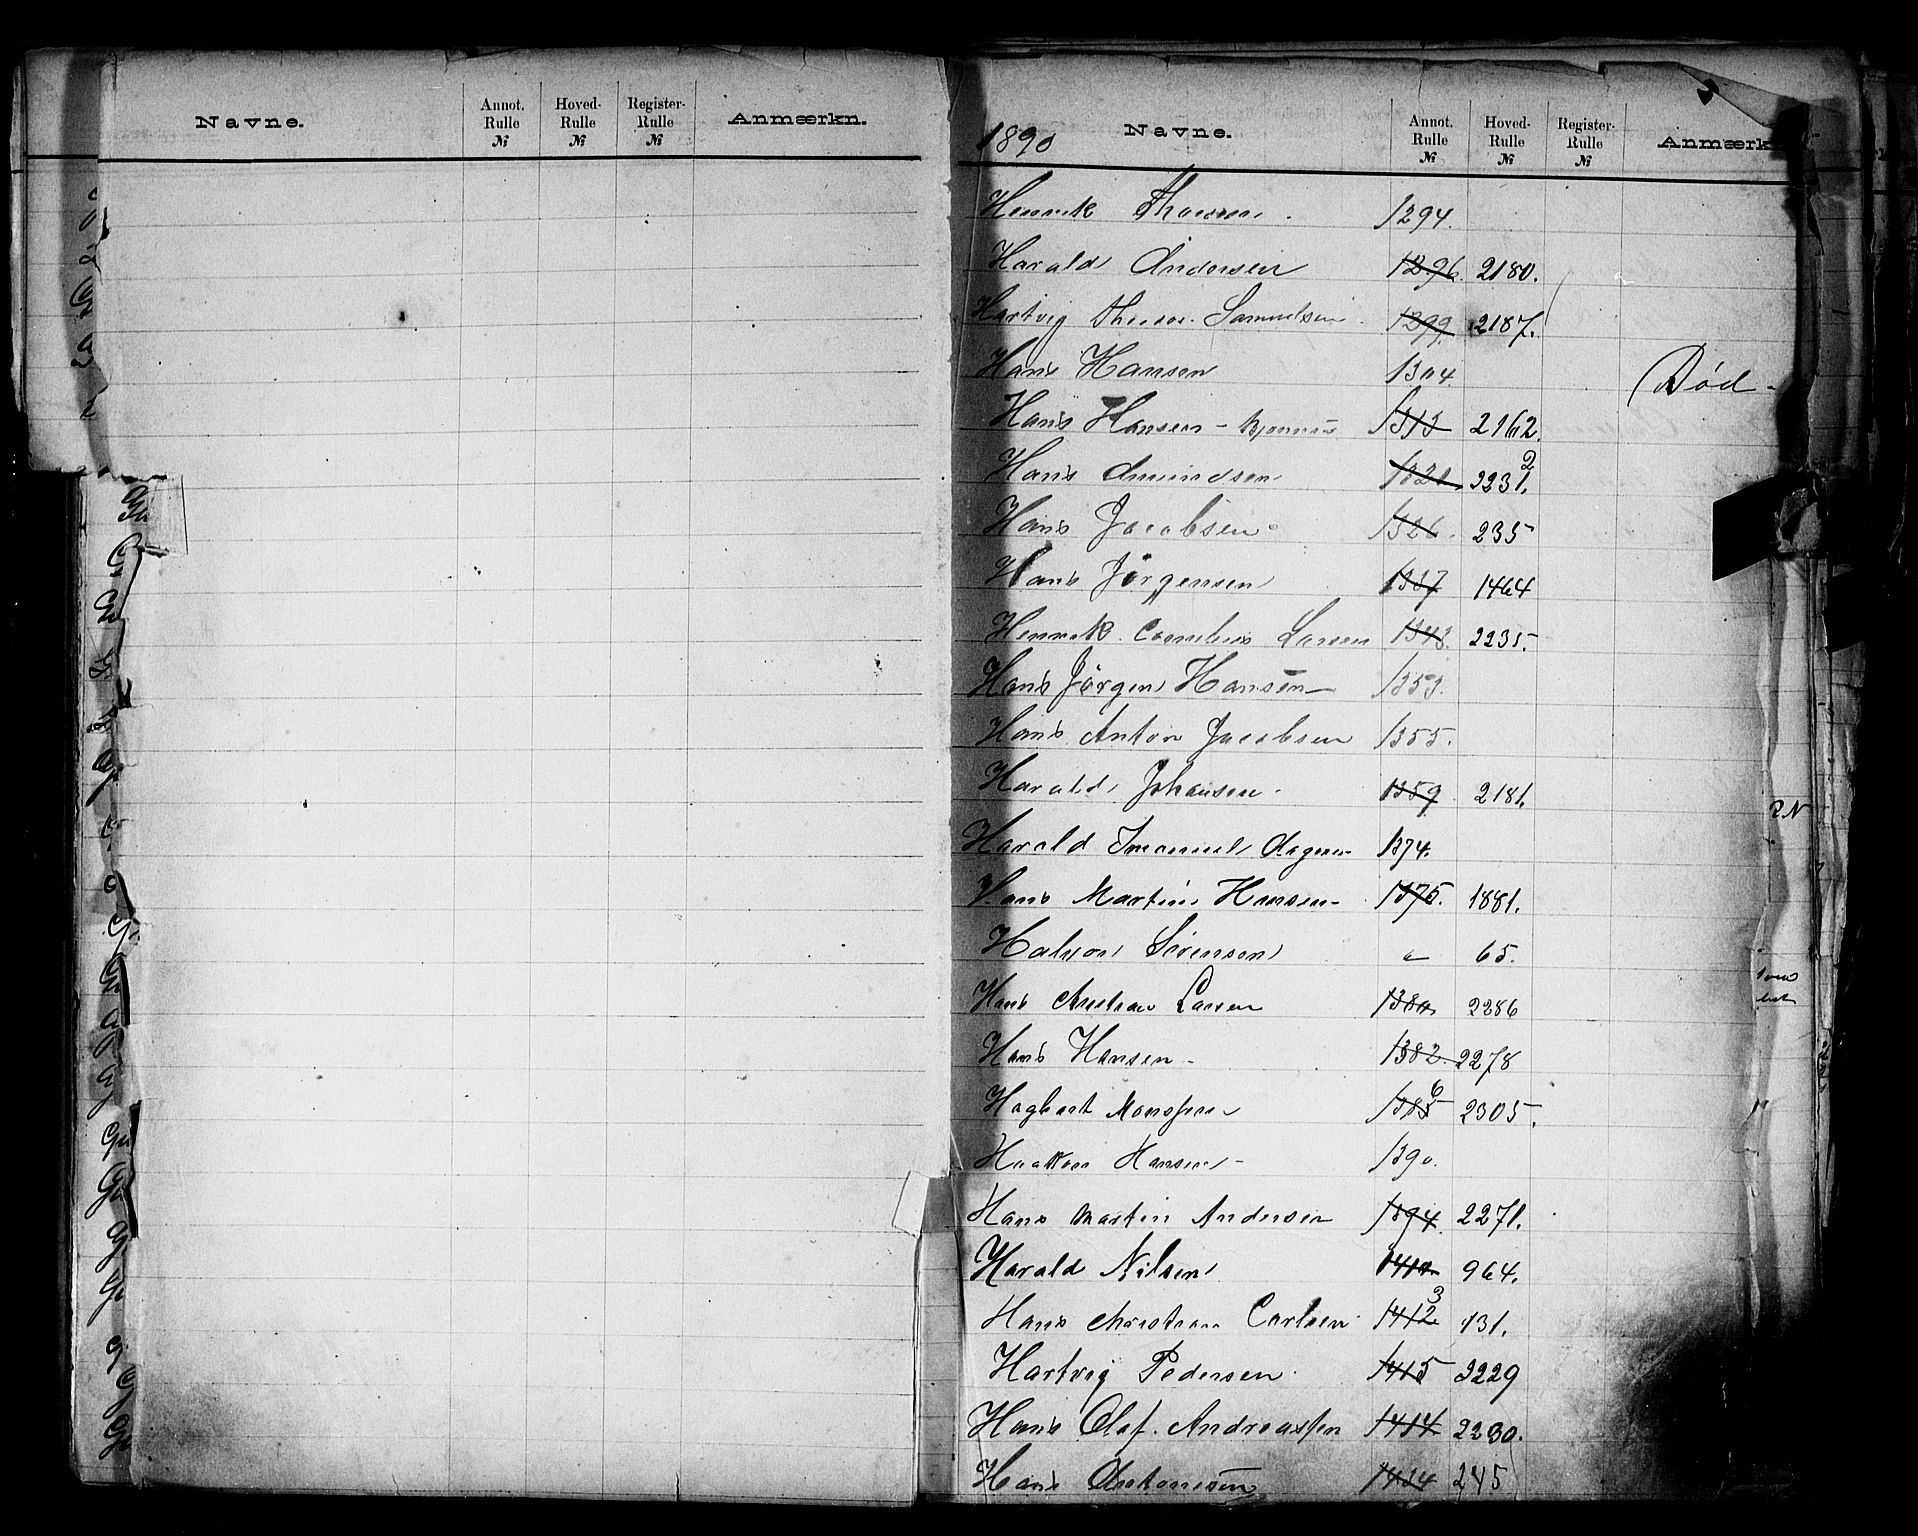 Navne. Annot. Rulle № Hoved-Rulle № Register-Rulle № Anmærkn.
1890 Navne. Annot. Rulle № Hoved-Rulle № Register-Rulle № Anmærk
Henrik 1294.
Harald Andersen 1296. 2180.
Hartvig Samuelsen 1299. 2187.
Hans Hansen 1304. Død
Hans Hansen 1313 2162.
Hans Amundsen 1321 2231. 2
Hans Jacobsen 1326. 235
Hans Jörgensen 1337 1464
Henrik Cornelius Larsen 1343. 2235.
Hans Jörgen Hansen 1353.
Hans Anton Jacobsen 1355.
Harald Johansen 1359 2181.
Harald Imanuel 1374.
Hans Martin Hansen 1375. 1881.
Halvor Sörensen 65.
Hans Christian Larsen 1380. 2286
Hans Hansen 1382. 2278
Hagbart 1385 6 2305.
Haakon Hansen 1390.
Hans Martin Andersen 1394. 2271.
Harald Nilsen 1410 964.
Hans Christian Carlsen 1412 3 131.
Hartvig Pedersen 1415 2229
Hans Olaf Andreassen 1414 2230.
Hans Antonisen 1424 245